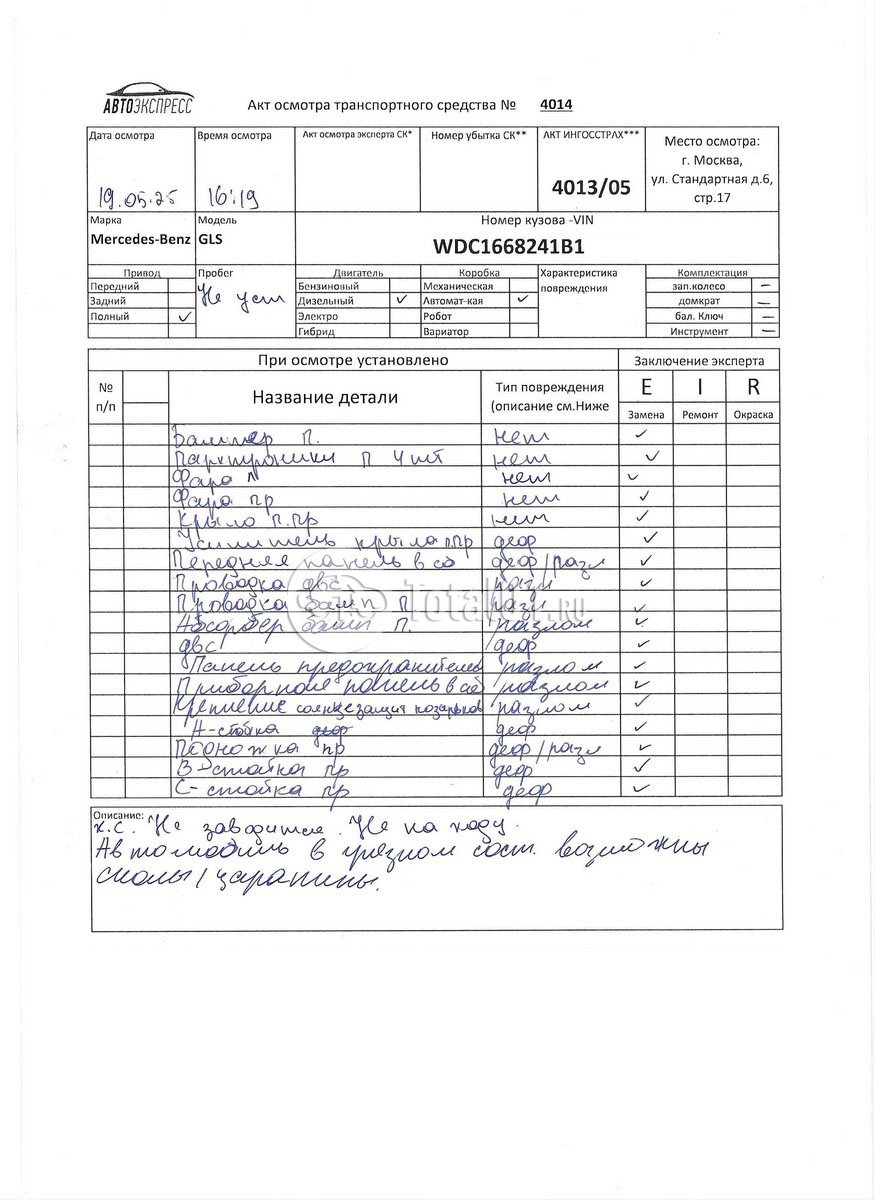 АВТОЭКСПРЕСС
Акт осмотра транспортного средства № 4014
Дата осмотра Время осмотра Акт осмотра эксперта СК* Номер убытка СК** АКТ ИНГОССТРАХ*** Место осмотра:
г. Москва,
ул. Стандартная д.6,
стр.17
19.05.25 16:19 4013/05
Марка Модель Номер кузова -VIN
Mercedes-Benz GLS WDC1668241B1
Привод Пробег Двигатель Коробка Характеристика Комплектация
Передний Не уст Бензиновый Механическая повреждения зап.колесо –
Задний Дизельный ✓ Автомат-кая ✓ домкрат –
Полный ✓ Электро Робот бал. Ключ –
Гибрид Вариатор Инструмент –
При осмотре установлено Заключение эксперта
№ п/п Название детали Тип повреждения (описание см.Ниже E I R
Замена Ремонт Окраска
Бампер П. нет ✓
Парктроники П 4 шт нет ✓
Фара л нет ✓
Фара пр нет ✓
Крыло п.пр нет ✓
Усилитель крыла ппр деф ✓
Передняя панель в сб деф/разл ✓
Проводка двс разл ✓
Проводка бамп П разл ✓
Абсорбер бамп П. разлом ✓
двс деф ✓
Панель предохранителей разлом ✓
Приборная панель в сб разлом ✓
Крепление солнцезащит козырьков разлом ✓
А-стойка деф ✓
Подножка пр деф/разл ✓
В-стойка пр деф ✓
С-стойка пр деф ✓
Описание:
х.с. Не заводится. Не на ходу.
Автомобиль в грязном сост. возможны
сколы/царапины.
STS TotalKit.RU